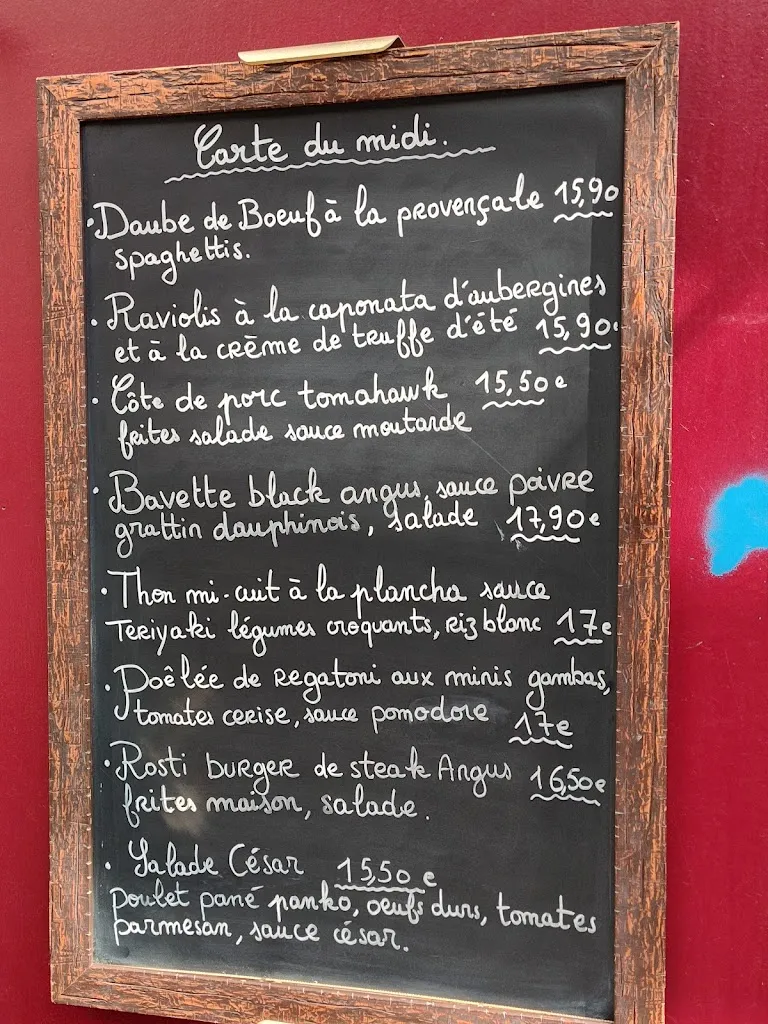 Carte du midi.
· Daube de Boeuf à la provençale 15,90
spaghettis.
· Raviolis à la caponata d'aubergines
et à la crème de truffe d'été 15,90€
· Côte de porc tomahawk 15,50€
frites salade sauce moutarde
· Bavette black angus, sauce poivre
grattin dauphinois, salade 17,90€
· Thon mi-cuit à la plancha sauce
Teriyaki légumes croquants, riz blanc 17€
· Poêlée de regatoni aux minis gambas,
tomates cerise, sauce pomodore 17€
· Rosti burger de steak Angus 16,50€
frites maison, salade.
· Salade César 15,50€
poulet pané panko, oeufs durs, tomates
parmesan, sauce césar.